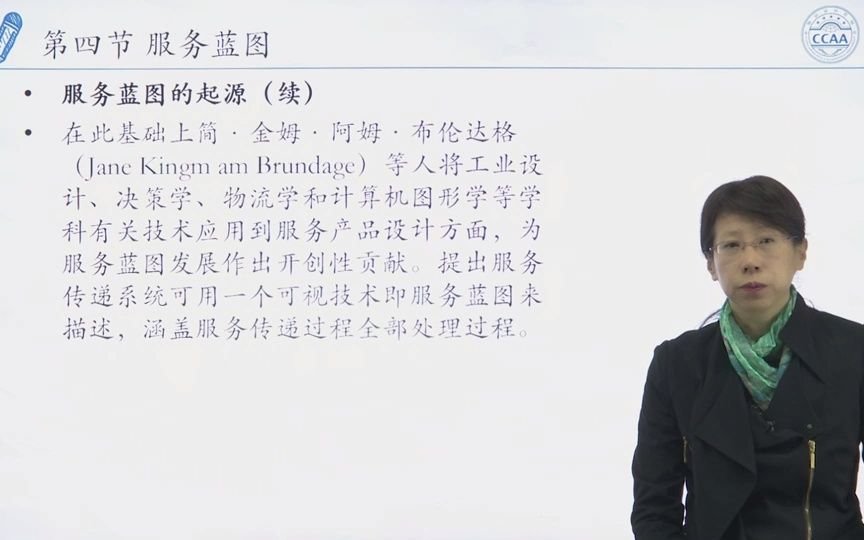 第四节 服务蓝图
CCAA
• 服务蓝图的起源（续）
• 在此基础上简·金姆·阿姆·布伦达格
（Jane Kingm am Brundage）等人将工业设
计、决策学、物流学和计算机图形学等学
科有关技术应用到服务产品设计方面，为
服务蓝图发展作出开创性贡献。提出服务
传递系统可用一个可视技术即服务蓝图来
描述，涵盖服务传递过程全部处理过程。